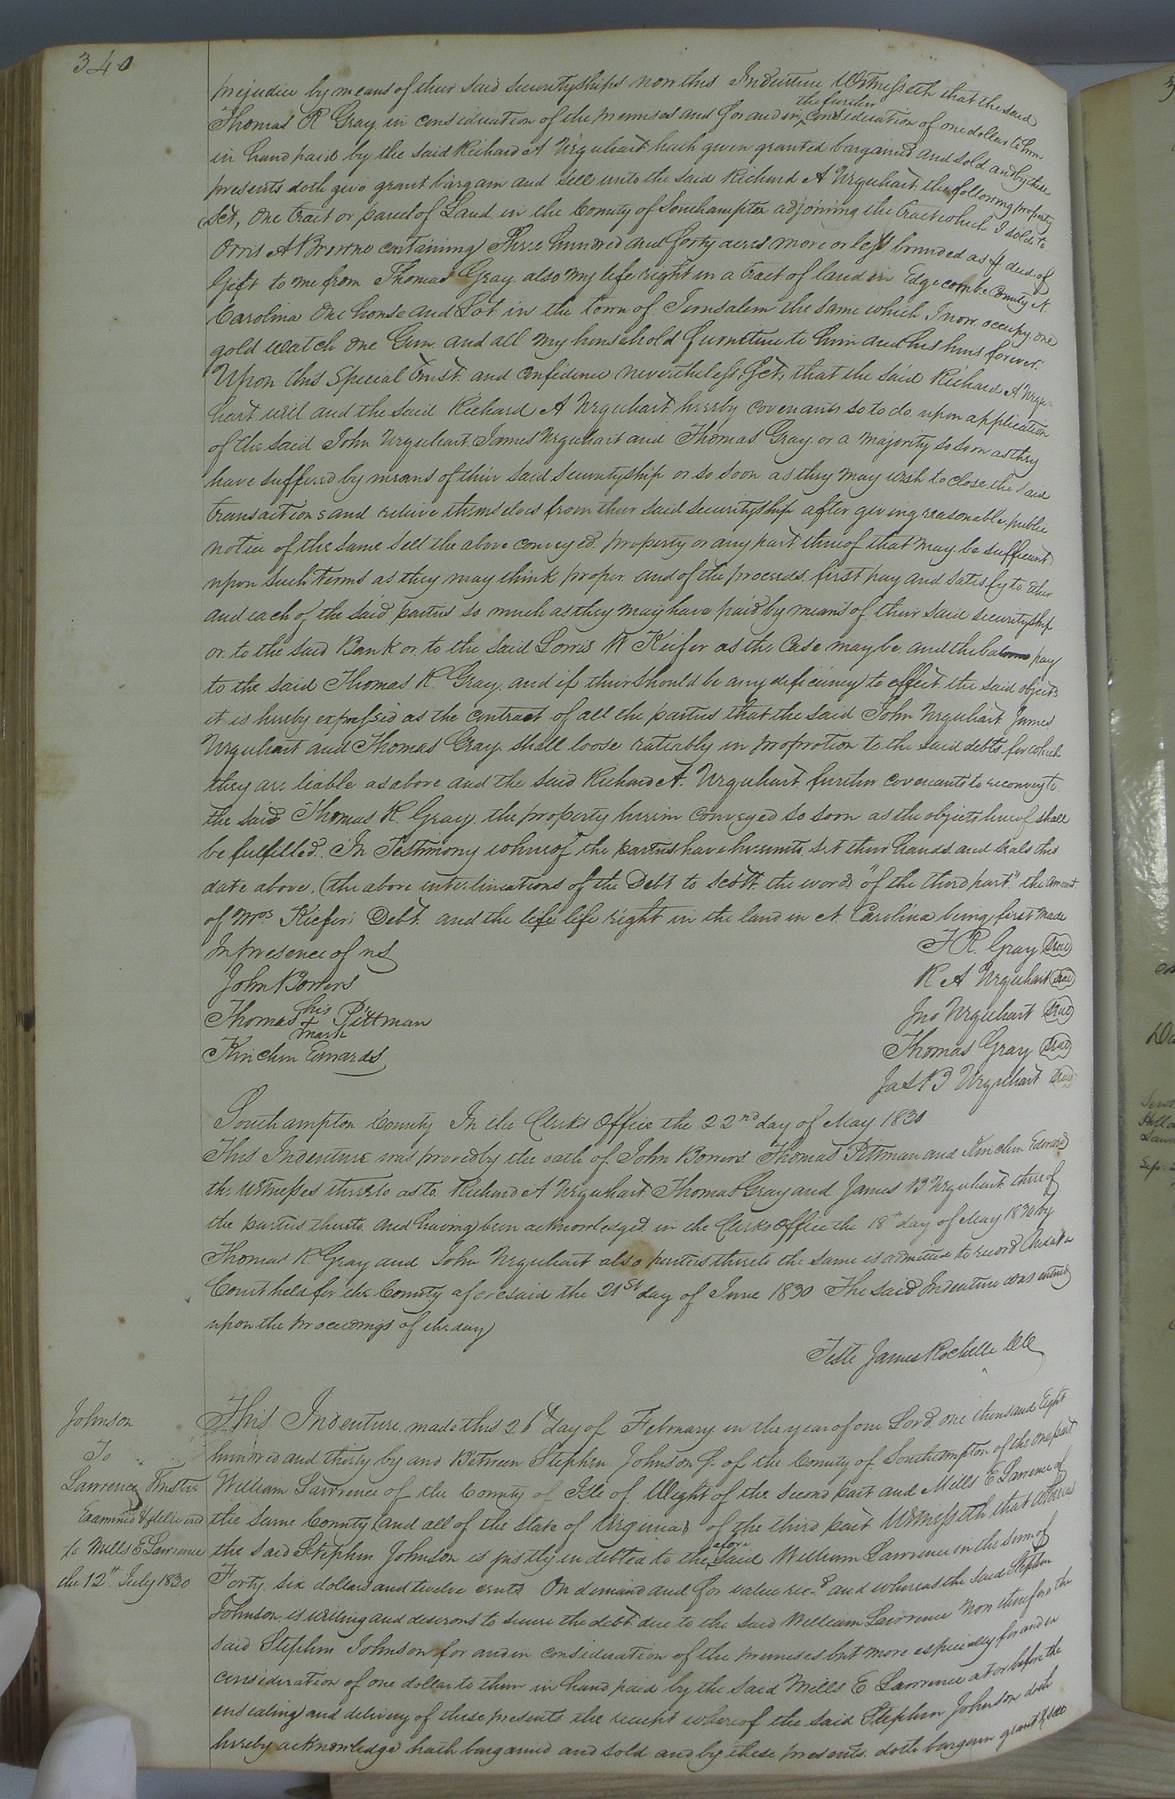 340
prejudice by means of their said securityships now this Indenture Witnesseth that the said
Thomas R Gray in consideration of the premises and for and in the further consideration of one dollar to him
in hand paid by the said Richard A Urquhart hath given granted bargained and sold and by these
presents doth give grant bargain and sell unto the said Richard A Urquhart the following property
(Sct, One tract or parcel of Land in the County of Southampton adjoining the tract which I sold to
Orris A Browne containing Three hundred and forty acres more or less bounded as deed of
Gift to me from Thomas Gray also my life right in a tract of land in Edgecombe County N
Carolina One house and Lot in the town of Jerusalem the same which I now occupy one
gold watch One Gun and all my household furniture to him and his heirs forever.
Upon this special Trust and confidence nevertheless, Sct, that the said Richard A Urqu-
hart will and the said Richard A Urquhart hereby covenants so to do upon application
of the said John Urquhart James Urquhart and Thomas Gray or a majority so soon as they
have suffered by means of their said securityship or so soon as they may wish to close the said
transactions and relieve themselves from their said securityship after giving reasonable public
notice of the same sell the above conveyed property or any part thereof that may be sufficient
upon such terms as they may think proper and of the proceeds first pay and satisfy to either
and each of the said parties so much as they may have paid by means of their said securityship
or to the said Bank or to the said Lorris W Kiefer as the case may be and the pay
to the said Thomas R. Gray. and if their should be any deficiency to effect the said objects
it is hereby expressed as the contract of all the parties that the said John Urquhart James
Urquhart and Thomas Gray shall loose rateably in proprotion to the said debts for which
they are leable as above and the said Richard A. Urquhart further covenants to reconvey to
the said Thomas R. Gray. the property herein conveyed so soon as the objects hereof shall
be fulfilled. In Testimony whereof the parties have hereunto set their hands and seals this
date above. (the above interlineations of the Debt to Scott the words "of the third part" the amount
of Mrs Kiefer's Debt. and the life life right in the land in N. Carolina being first made
In Presence of us
T R. Gray Seal
John Bowers
R A Urquhart Seal
Thomas his + mark Pittman
Jno Urquhart Seal
Kinchen Edwards
Thomas Gray Seal
Jas B Urquhart Seal
Southampton County In the Clerks Office the 22nd day of May 1830
This Indenture was proved by the oath of John Bowers Thomas Pittman and Kinchen Edwards
the Witnesses thereto as to Richard A Urquhart Thomas Gray and James B Urquhart three of
the parties thereto and having been acknowledged in the Clerks Office the 18th day of May 1830 by
Thomas R Gray and John Urquhart also parties thereto the same is admitted to record And at a
Court held for the County aforesaid the 21st day of June 1830 The said Indenture was entered
upon the proceedings of the day
Teste James Rochelle
Johnson
To
Lawrence Trustee
Examined & delivered
to Mills E Lawrence
the 12th July 1830
This Indenture made this 26th day of February in the year of our Lord one thousand Eight
hundred and thirty by and Between Stephen Johnson of the County of Southampton of the one part
William Lawrence of the County of Isle of Wight of the second part and Mills E Lawrence of
the same County (and all of the State of Virginia) of the third part Witnesseth that whereas
the said Stephen Johnson is justly indebted to the before said William Lawrence in the sum of
Forty six dollars and twelve cents On demand and for value rec.d and whereas the said Stephen
Johnson is willing and desirous to secure the debt due to the said William Lawrence Now therefore the
said Stephen Johnson for and in consideration of the premises but more especially for and in
consideration of one dollar to them in hand paid by the said Mills E Lawrence at or before the
ensealing and delivery of these presents the receipt whereof the said Stephen Johnson doth
hereby acknowledge hath bargained and sold and by these presents doth bargain grant & sell